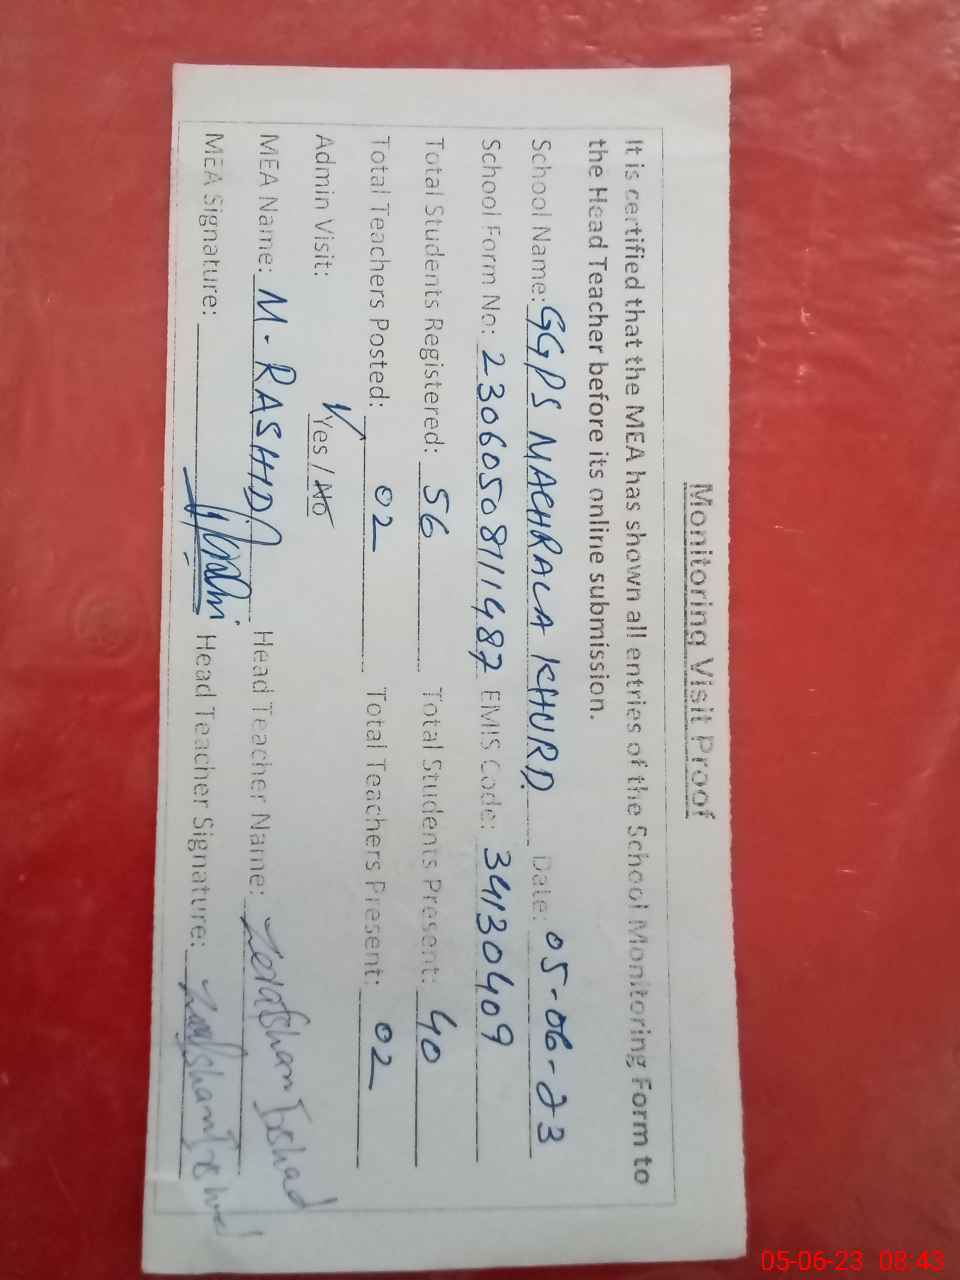 Monitoring Visit Proof
It is certified that the MEA has shown all entries of the School Monitoring Form to
the Head Teacher before its online submission.
School Name: GGPS MACHRALA KHURD. Date: 05-06-23
School Form No: 23060508111487 EMIS Code: 34130409
Total Students Registered: 56 Total Students Present: 40
Total Teachers Posted: 02 Total Teachers Present: 02
Admin Visit: Yes / No
MEA Name: M. RASHID Head Teacher Name: Zerafsham Irshad
MEA Signature: Head Teacher Signature:
05-06-23 08:43